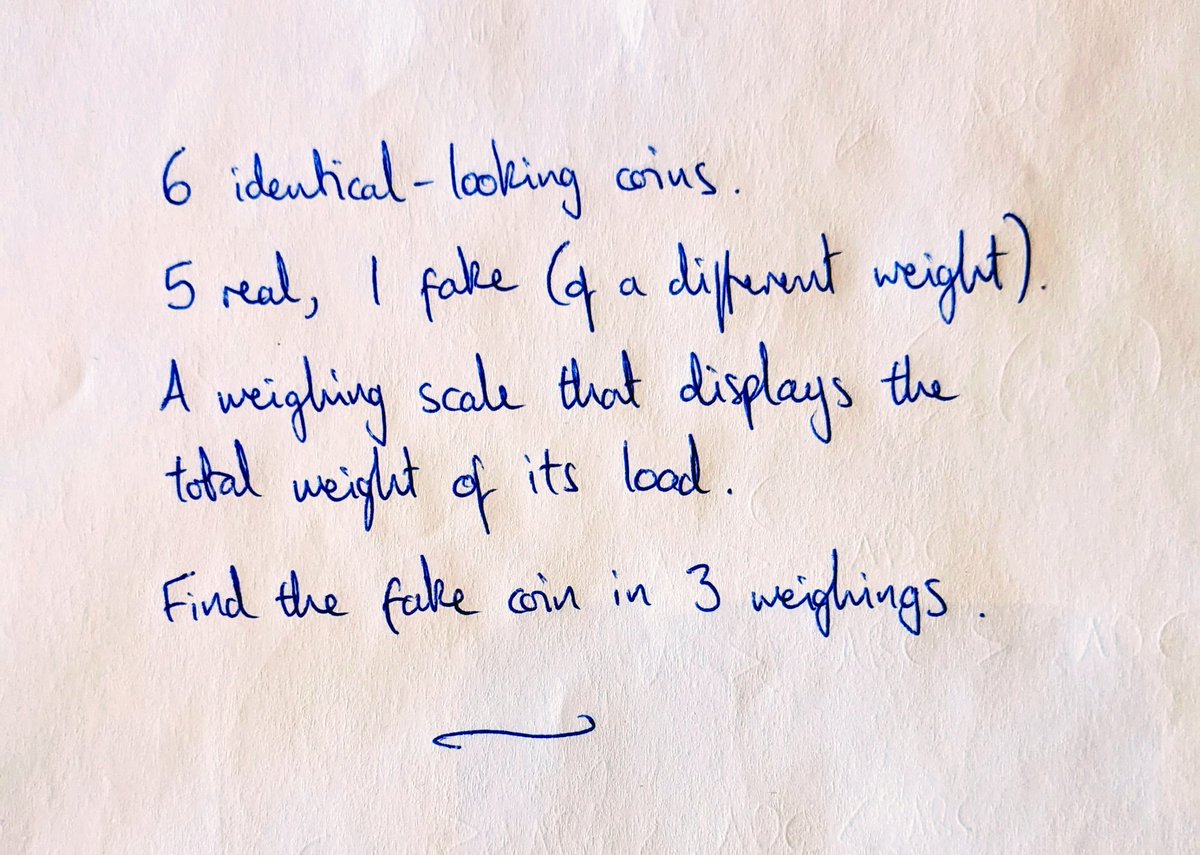 6 identical-looking coins.
5 real, 1 fake (of a different weight).
A weighing scale that displays the
total weight of its load.
Find the fake coin in 3 weighings.